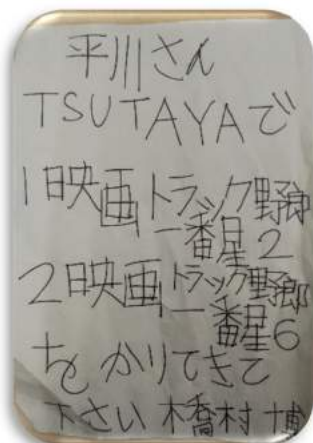 平川さん
TSUTAYAで
1日映画トラック野郎
一番星2
2日映画トラック野郎
一番星6
をかりてきて
下さい橋村博